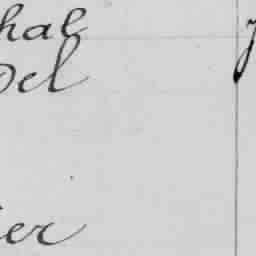 hal
Del
er